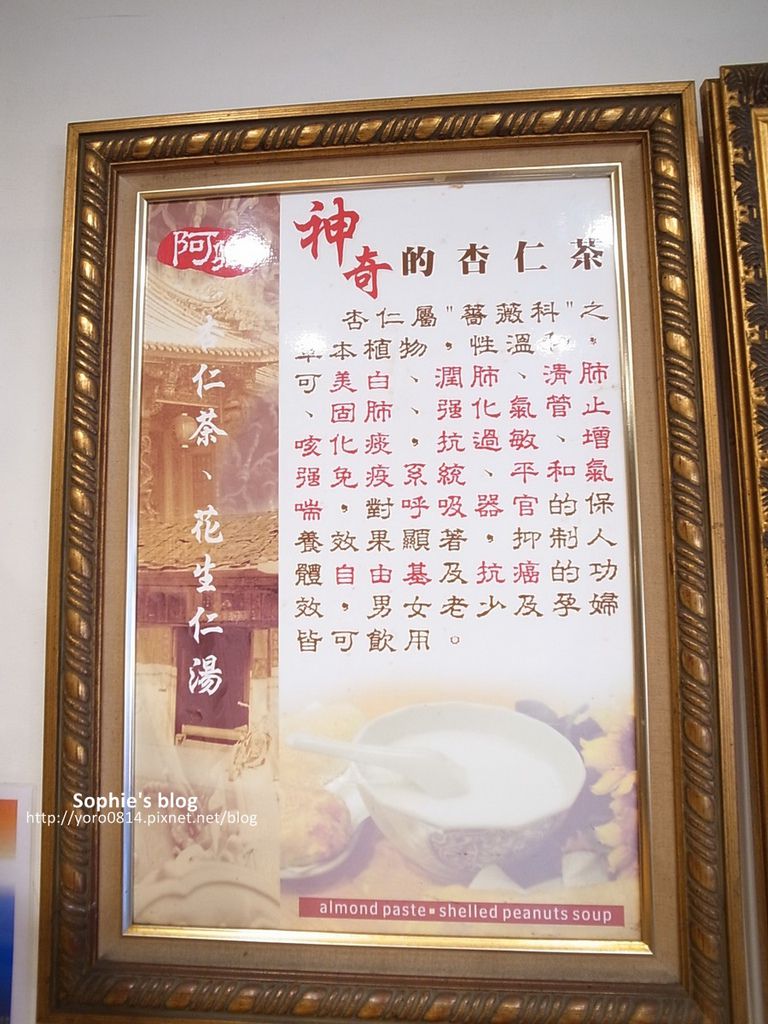 神奇的杏仁茶
杏仁屬"薔薇科"之
草本植物，性溫和，
可美白、潤肺、清肺
、固肺、强化氣管、止
咳化痰，抗過敏、增
强免疫系統、平和氣
喘，對呼吸器官的保
養效果顯著，抑制人
體自由基及抗癌的功
效，男女老少及孕婦
皆可飲用。
阿
杏仁茶、花生仁湯
almond paste▪shelled peanuts soup
Sophie's blog
http://yoro0814.pixnet.net/blog